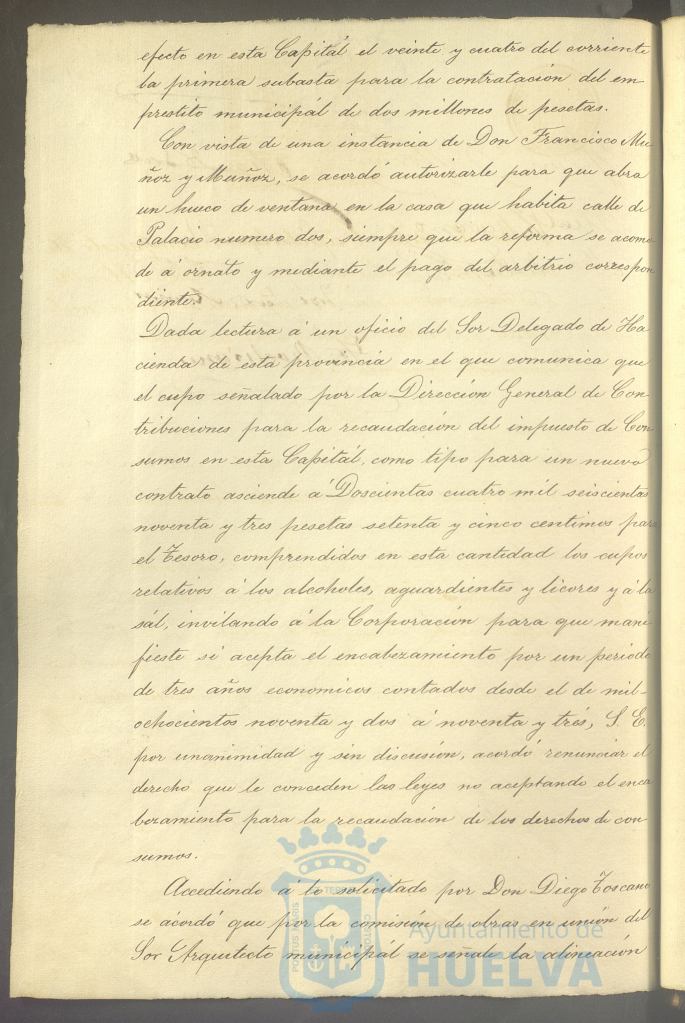 efecto en esta Capitál el veinte y cuatro del corriente
la primera subasta para la contratación del em-
prestito municipál de dos millones de pesetas.
Con vista de una instancia de Don Francisco Mu
ñoz y Muñoz, se acordó autorizarle para que abra
un hueco de ventana en la casa que habita calle de
Palacio numero dos, siempre que la reforma se acomo
de á ornato y mediante el pago del arbitrio correspon
diente.
Dada lectura á un oficio del Sor Delegado de Ha
cienda de esta provincia en el que comunica que
el cupo señalado por la Dirección General de Con
tribuciones para la recaudación del impuesto de Con
sumos en esta Capitál, como tipo para un nuevo
contrato asciende á Doscientas cuatro mil seiscientas
noventa y tres pesetas setenta y cinco centimos para
el Tesoro, comprendidos en esta cantidad los cupos
relativos á los alcoholes, aguardientes y licores y á la
sál, invitando á la Corporación para que mani
fieste si acepta el encabezamiento por un periodo
de tres años economicos contados desde el de mil-
ochocientos noventa y dos á noventa y trés, S. E.
por unanimidad y sin discusión, acordó renunciar el
derecho que le conceden las leyes no aceptando el enca
bezamiento para la recaudación de los derechos de con
sumos.
Accediendo á lo solicitado por Don Diego Toscano
se acordó que por la comisión de obras en unión del
Sor Arquitecto municipál se señale la alineación
Ayuntamiento de
HUELVA